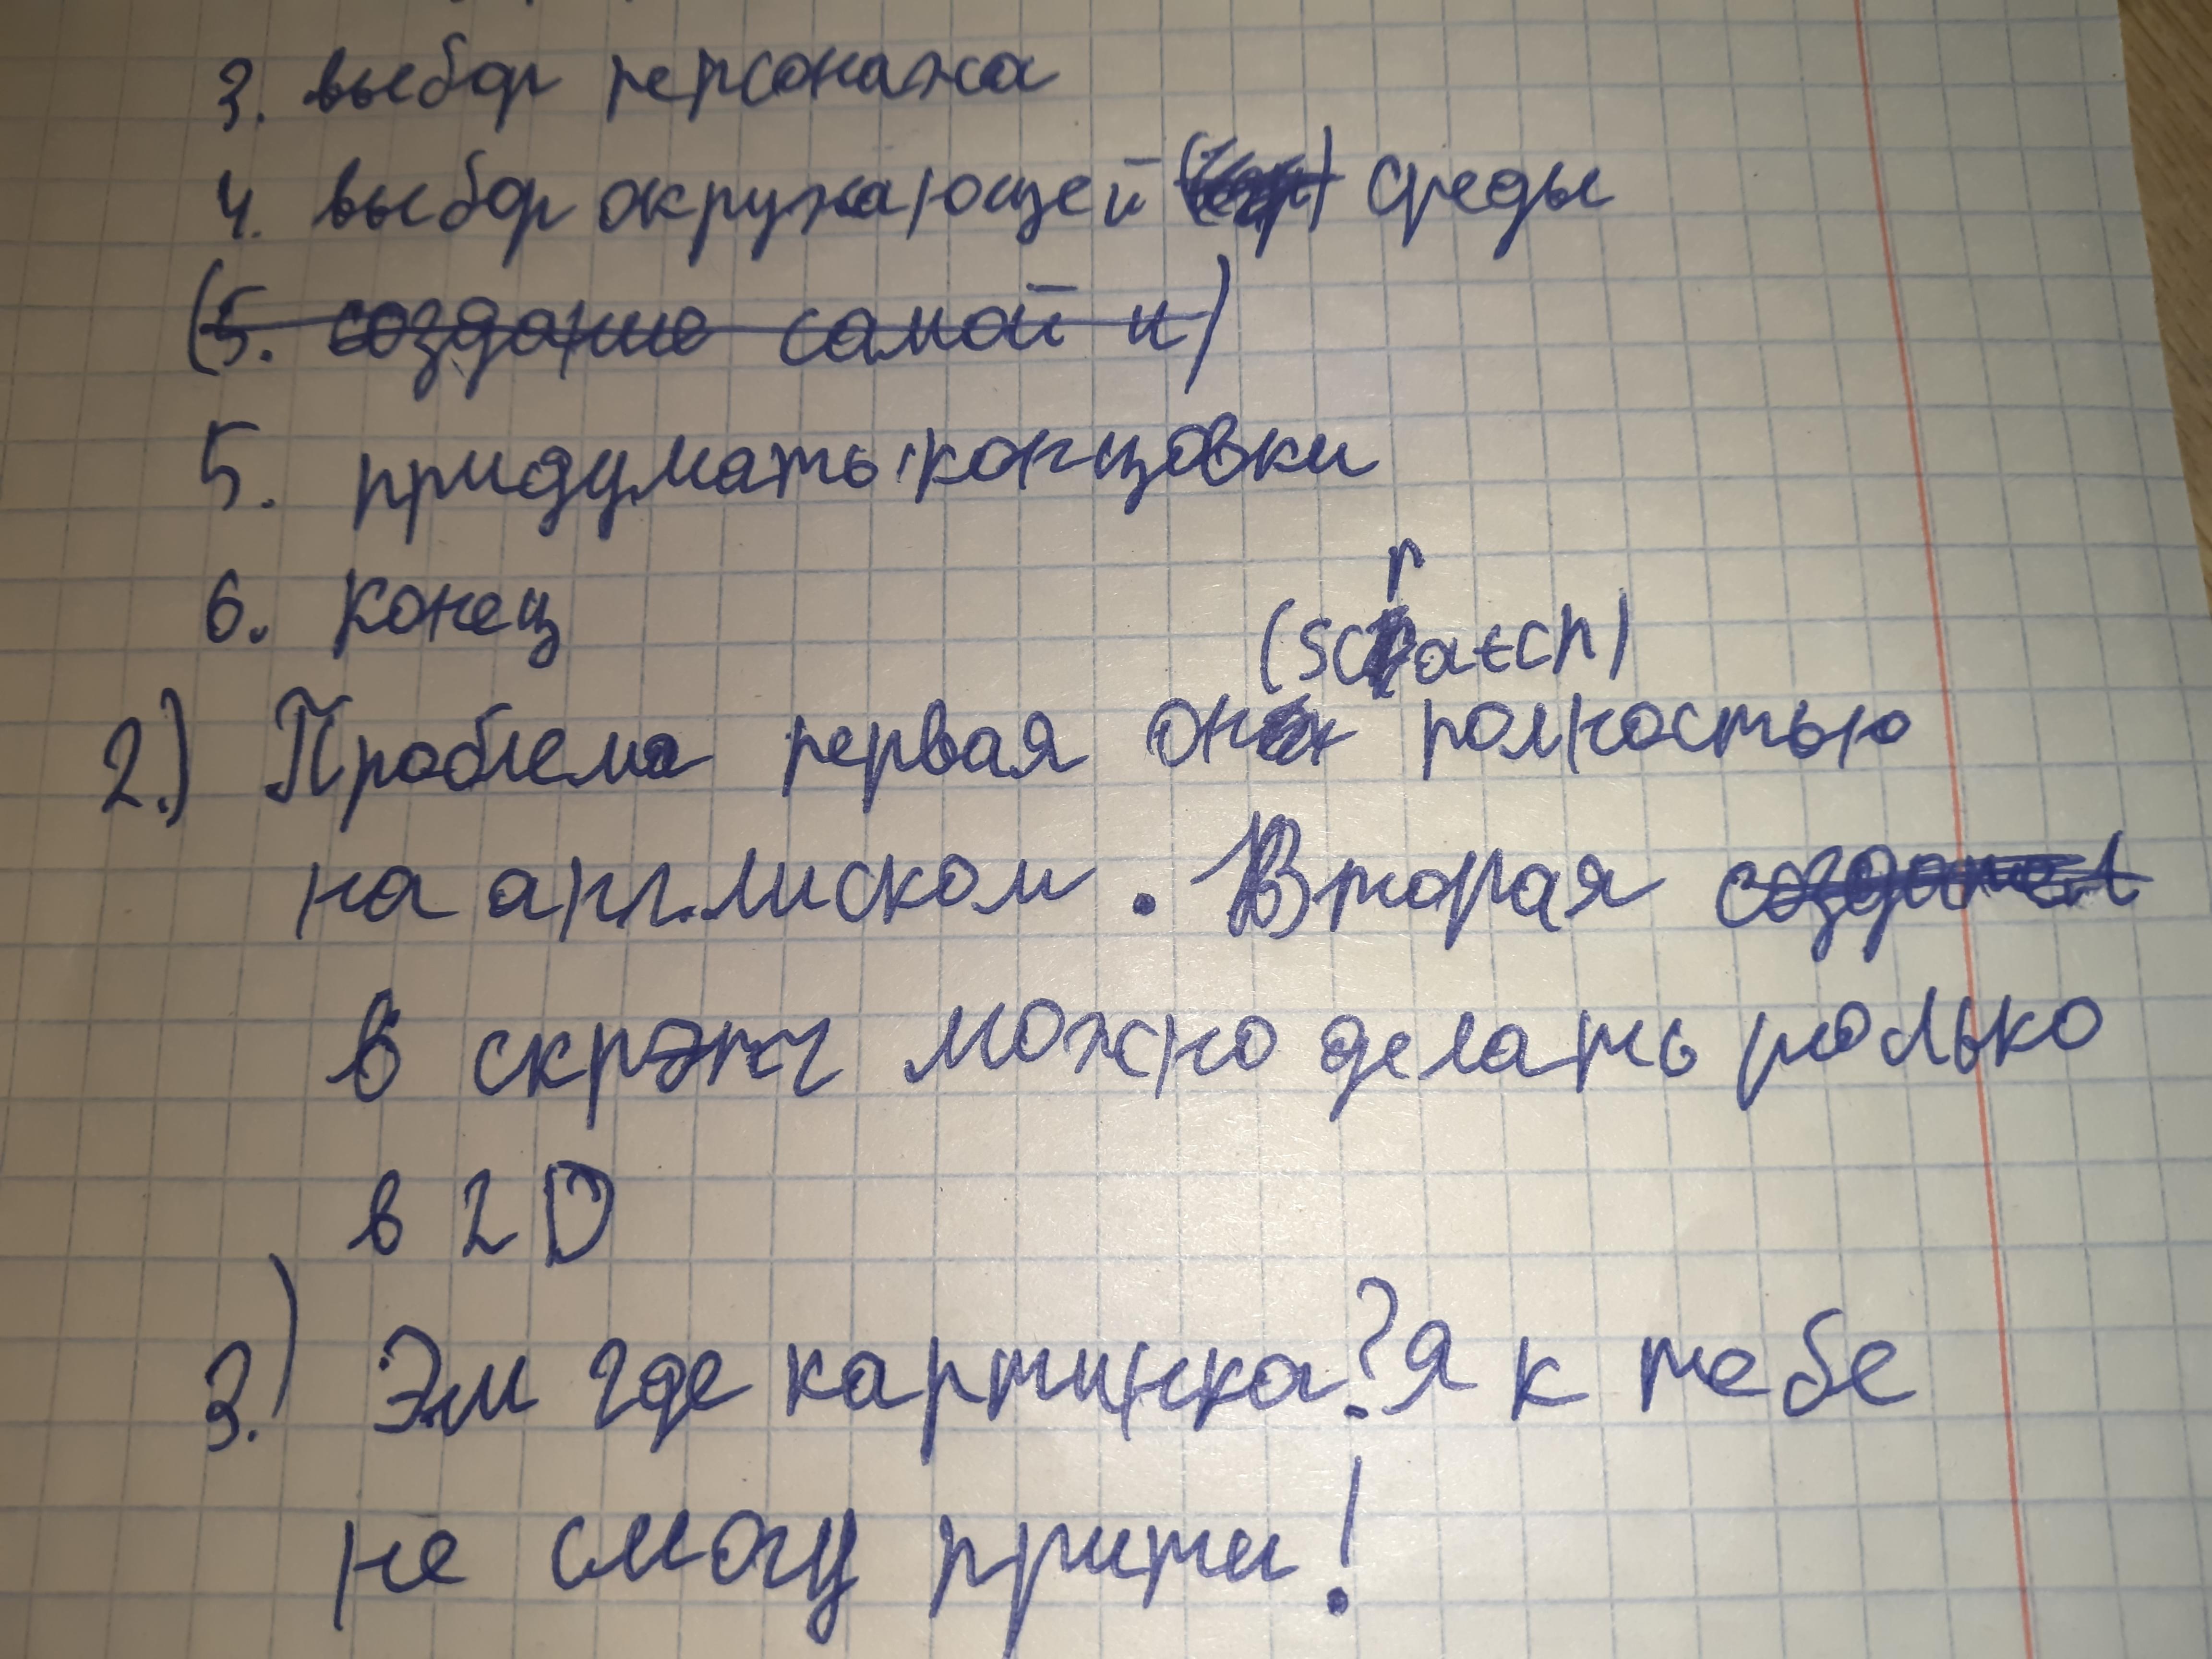 3. выбор персонажа
4. выбор окружающей среды
(5. создание самой и)
5. придумать концовки
6. конец
(scratch)
2.) Проблема первая он полностью
на англиском. Вторая
в скрэтч можно делать только
в 2D
3.) Эм где картинка? Я к тебе
не смогу прити!